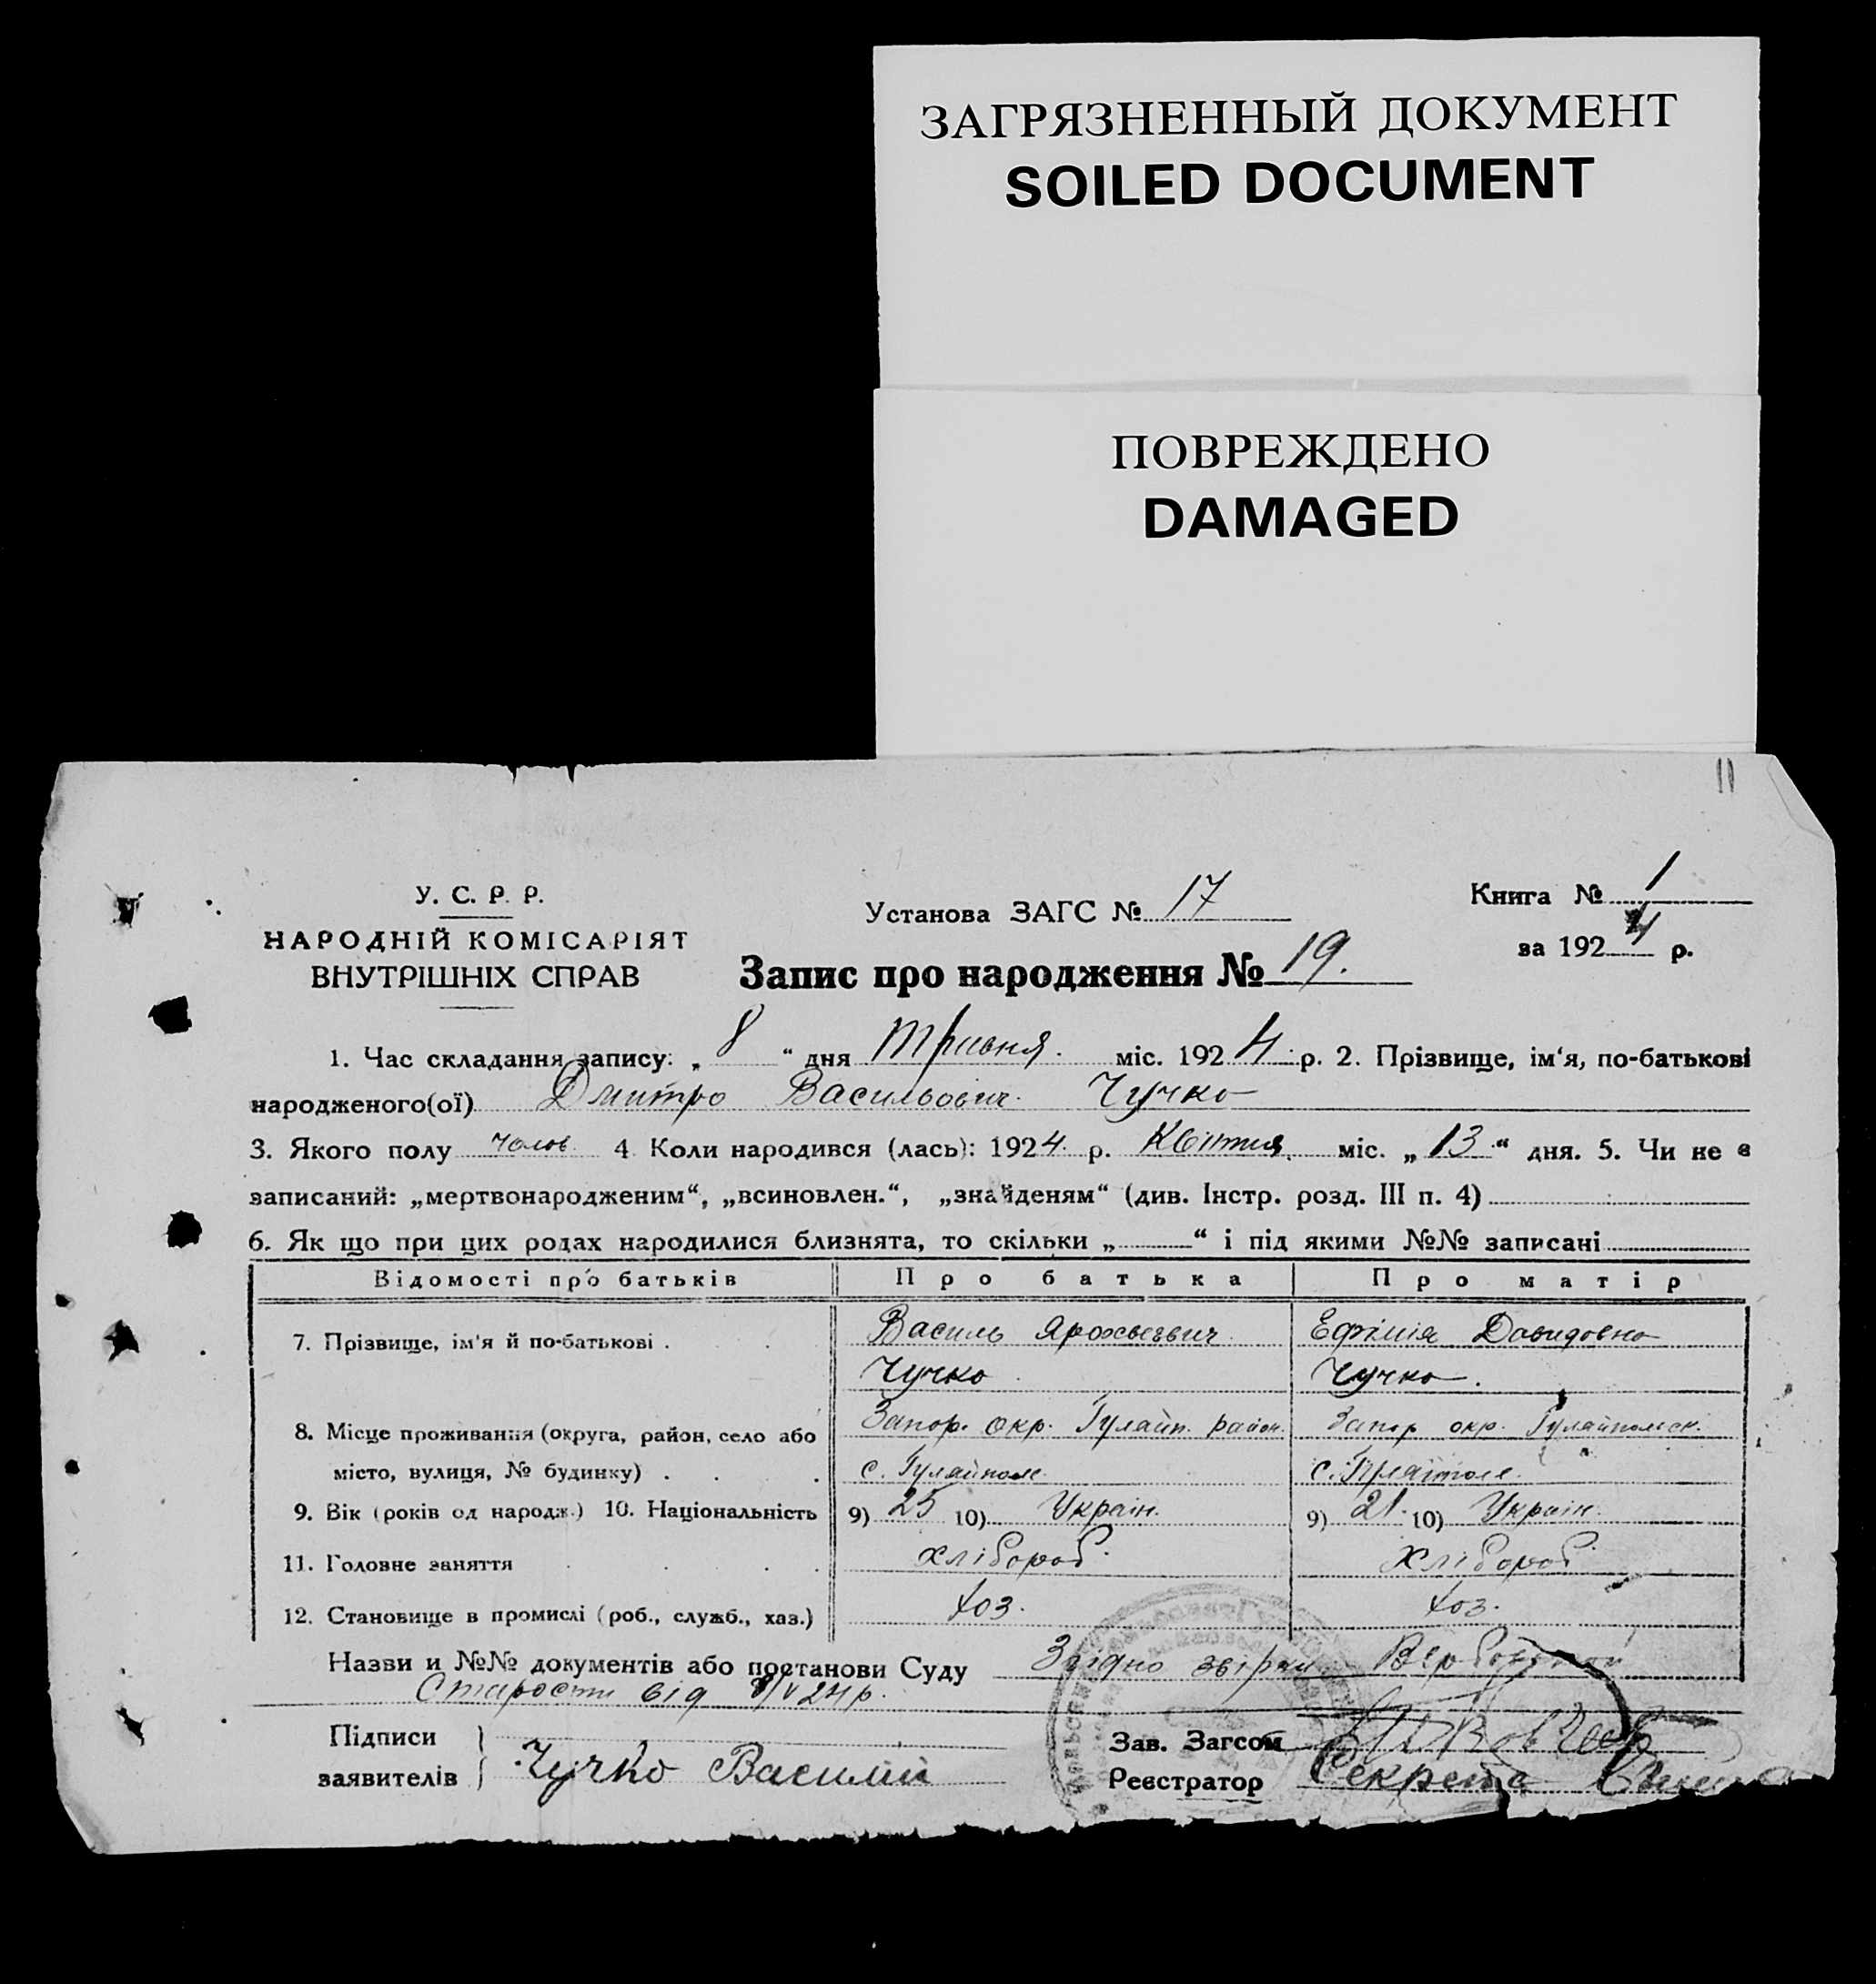 ЗАГРЯЗНЕННЫЙ ДОКУМЕНТ
SOILED DOCUMENT
ПОВРЕЖДЕНО
DAMAGED
11
У. С. Р. Р.
НАРОДНІЙ КОМІСАРІЯТ
ВНУТРІШНІХ СПРАВ
Установа ЗАГС № 17
Книга № 1
за 1924 р.
Запис про народження № 19.
1. Час складання запису: „ 8 “ дня Травня. міс. 1924 р. 2. Прізвище, ім‘я, по-батькові
народженого(ої) Дмитро Васильович Чучко
3. Якого полу чолов. 4. Коли народився (лась): 1924. р. Квітня. міс. „ 13 “ дня. 5. Чи не є
записаний: „мертвонародженим“, „всиновлен.“, „знайденям“ (див. Інстр. розд. III п. 4)
6. Як що при цих родах народилися близнята, то скільки „ “ і під якими №№ записані
Відомості про батьків Про батька Про матір
7. Прізвище, ім'я й по-батькові . Василь Ефімія Давидовна
Чучко Чучко.
8. Місце проживання (округа, район, село або Запор. окр. Гуляйп. район. Запор окр. Гуляйпольск.
місто, вулиця, № будинку) . . . с. Гуляйполе с. Гуляйполе.
9. Вік (років од народж.) 10. Національність 9) 25 10) Україн. 9) 21. 10) Україн.
11. Головне заняття хлібороб. Хлібороб
12. Становище в промислі (роб., служб., хаз.) хоз. хоз.
Назви и №№ документів або постанови Суду Згідно
Старости від 8/V 24 р.
Підписи
заявителів Чучко Василий
Зав. Загсом
Реєстратор Секрета